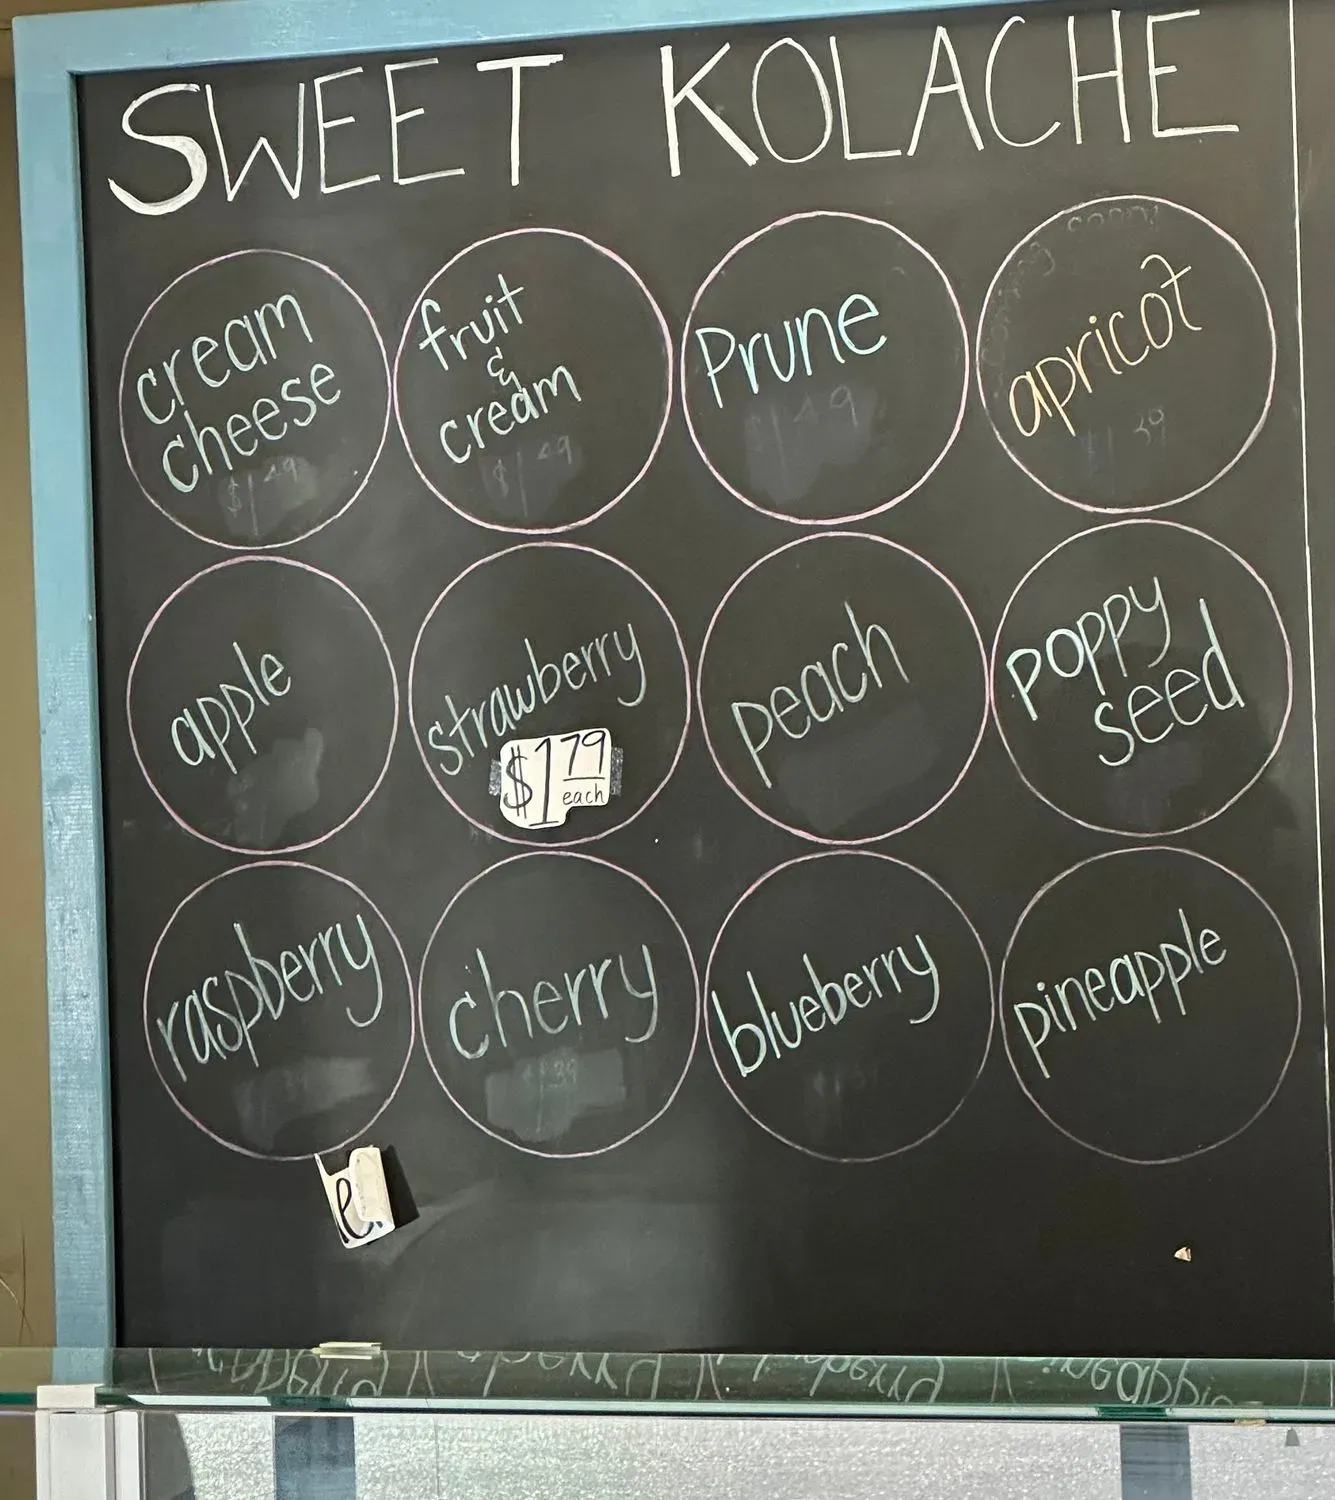 SWEET KOLACHE
cream
cheese
$1 49
fruit
&
cream
$1 49
Prune
$1 49
apricot
$1 39
apple
strawberry
$1 79
each
peach
poppy
seed
raspberry
cherry
blueberry
pineapple